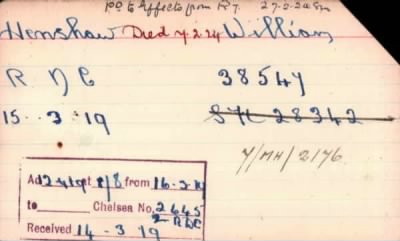 po to Effects from R.7. 27-2-24
Henshaw Died 7.2.24 William
R D C 38547
15 . 3 . 19 S/K 28342
7/MH/2176
Ad at 8/8 from 16-3-19
to Chelsea No. 2645
2-RDC
Received 14 - 3 19